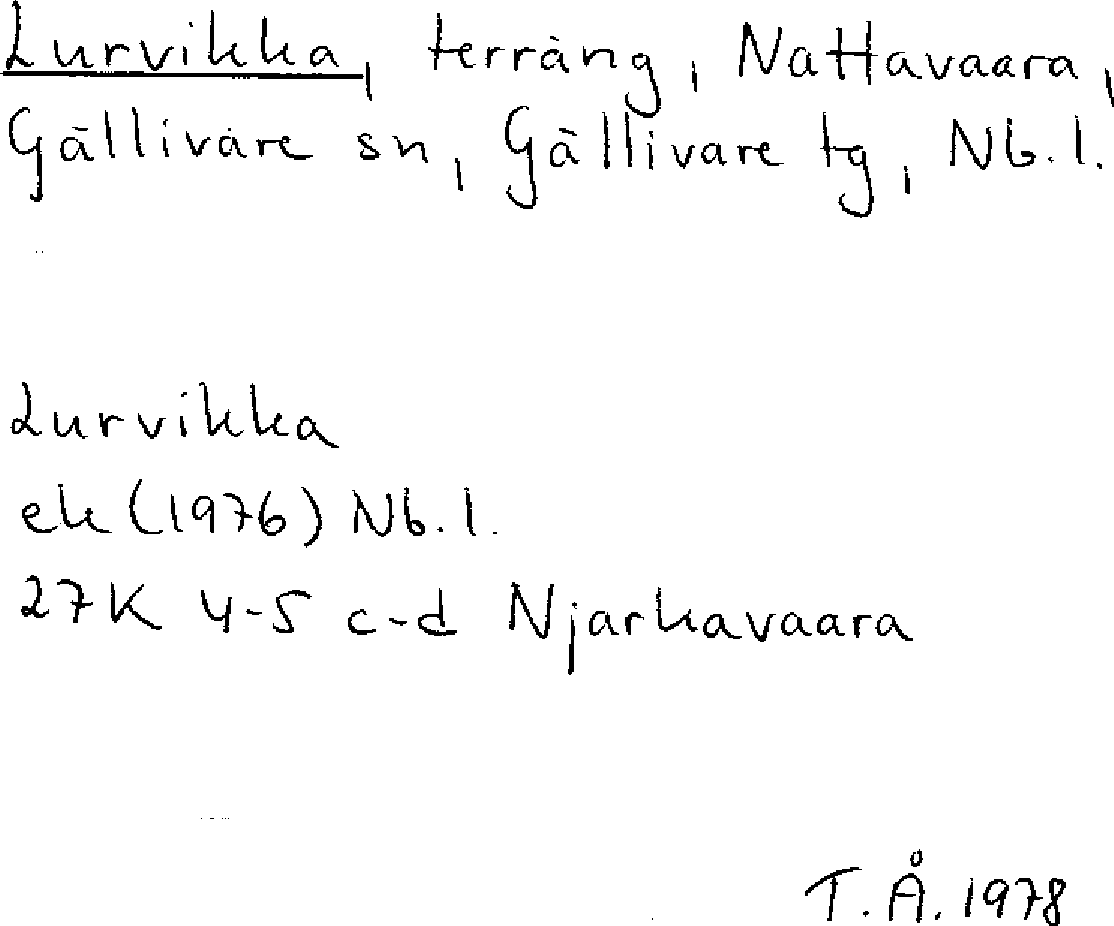 Lurvikka, terräng, Nattavaara,
Gällivare sn, Gällivare tg, Nb.l.
Lurvikka
ek (1976) Nb.l.
27K 4-5 c-d Njarkavaara
T.Å. 1978